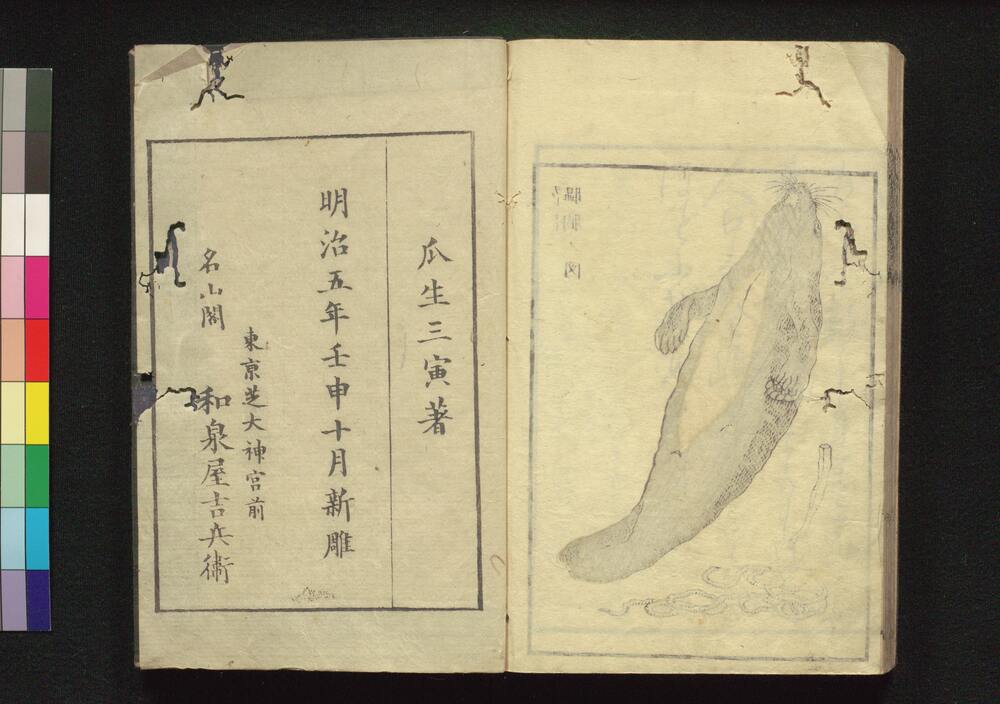 瓜生三寅著
明治五年壬申十月新雕
東京芝大神宮前
名山閣 和泉屋吉兵衛